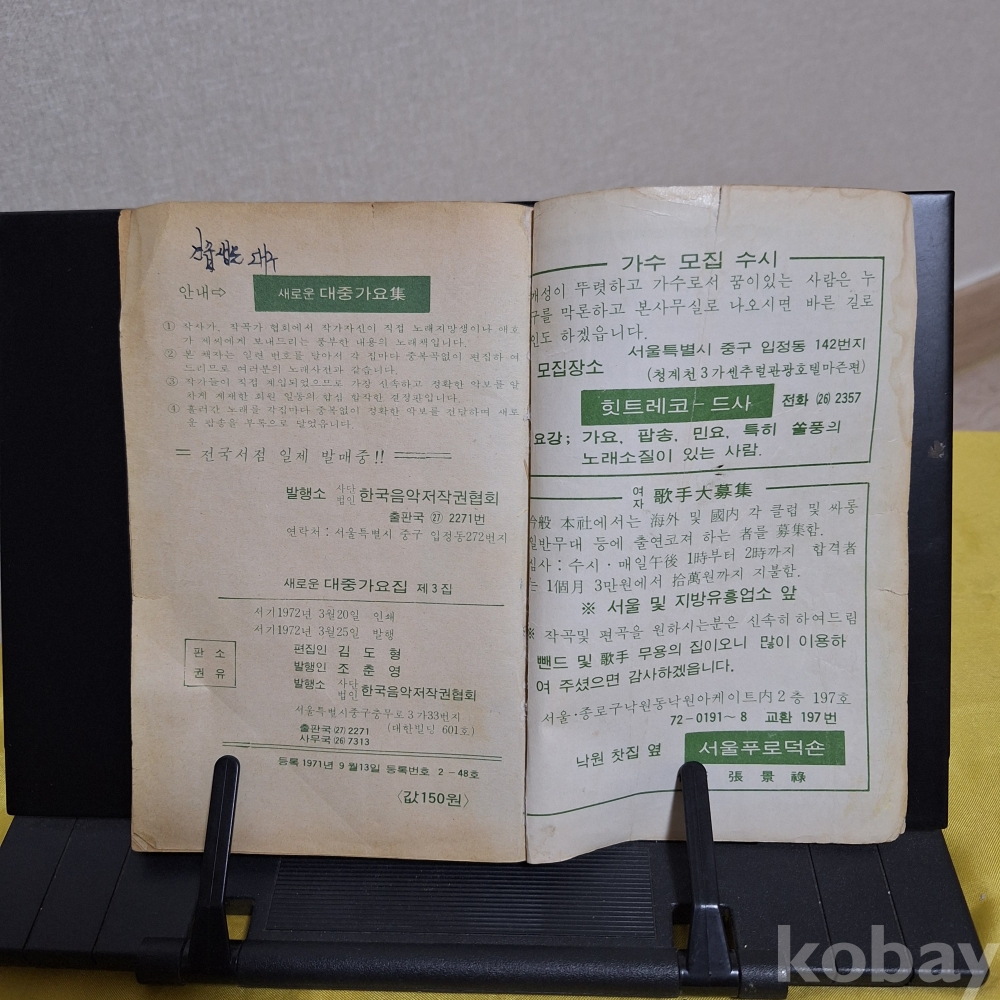 안내⇨ 새로운 대중가요集
① 작사가, 작곡가 협회에서 작가자신이 직접 노래지망생이나 애호
가 제씨에게 보내드리는 풍부한 내용의 노래책입니다.
② 본 책자는 일련 번호를 달아서 각 집마다 중복곡없이 편집하여
드리므로 여러분의 노래사전과 같습니다.
③ 작가들이 직접 게입되었으므로 가장 신속하고 정확한 악보를 알
차게 게재한 회원 일동의 합심 합작한 결정판입니다.
④ 흘러간 노래를 각집마다 중복없이 정확한 악보를 전달하며 새로
운 팝송을 부록으로 달았읍니다.
= 전국서점 일제 발매중!! =
발행소 사단법인 한국음악저작권협회
출판국 ㉗ 2271번
연락처 : 서울특별시 중구 입정동272번지
새로운 대중가요집 제3집
서기1972년 3월20일 인쇄
서기1972년 3월25일 발행
판 소
권 유
편집인 김 도 형
발행인 조 춘 영
발행소 사단법인 한국음악저작권협회
서울특별시중구충무로3가33번지
출판국(27)2271 (대한빌딩 601호)
사무국(26)7313
등록 1971년 9월13일 등록번호 2-48호
〈값150원〉
가수 모집 수시
개성이 뚜렷하고 가수로서 꿈이있는 사람은 누
구를 막론하고 본사무실로 나오시면 바른 길로
인도 하겠읍니다.
모집장소 서울특별시 중구 입정동 142번지
(청계천3가쎈추럴관광호텔마즌편)
힛트레코-드사 전화 (26) 2357
요강; 가요, 팝송, 민요, 특히 쏠풍의
노래소질이 있는 사람.
여자 歌手大募集
今般 本社에서는 海外 및 國内 각 클럽 및 싸롱
일반무대 등에 출연코져 하는 者를 募集함.
심사 : 수시·매일午後 1時부터 2時까지 합격者
는 1個月 3만원에서 拾萬원까지 지불함.
※ 서울 및 지방유흥업소 앞
※ 작곡및 편곡을 원하시는분은 신속히하여드림
뺀드 및 歌手 무용의 집이오니 많이 이용하
여 주셨으면 감사하겠읍니다.
서울·종로구낙원동낙원아케이트内2층 197호
72-0191~8 교환 197번
낙원 찻집 옆 서울푸로덕숀
張 景 祿
kobay